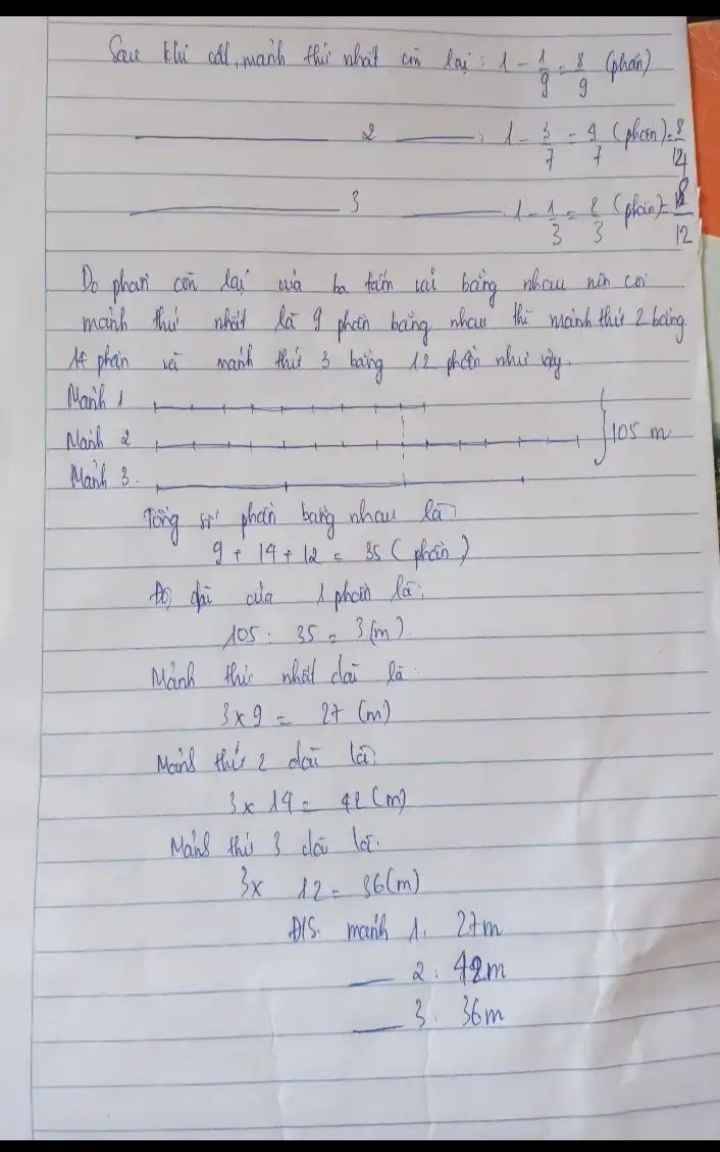 Sau khi cắt, mảnh thứ nhất còn lại : 1 - 1/9 = 8/9 (phần)
—— 2 —— : 1 - 3/7 = 4/7 (phần) = 8/14
—— 3 —— 1 - 1/3 = 2/3 (phần) = 8/12
Do phần còn lại của ba tấm vải bằng nhau nên coi
mảnh thứ nhất là 9 phần bằng nhau thì mảnh thứ 2 bằng
14 phần và mảnh thứ 3 bằng 12 phần như vậy.
Mảnh 1
Mảnh 2 105 m
Mảnh 3.
Tổng số phần bằng nhau là:
9 + 14 + 12 = 35 (phần)
Độ dài của 1 phần là:
105 : 35 = 3 (m)
Mảnh thứ nhất dài là:
3 x 9 = 27 (m)
Mảnh thứ 2 dài là:
3 x 14 = 42 (m)
Mảnh thứ 3 dài là:
3 x 12 = 36 (m)
Đ/S: mảnh 1: 27m
—— 2 : 42m
—— 3 : 36m